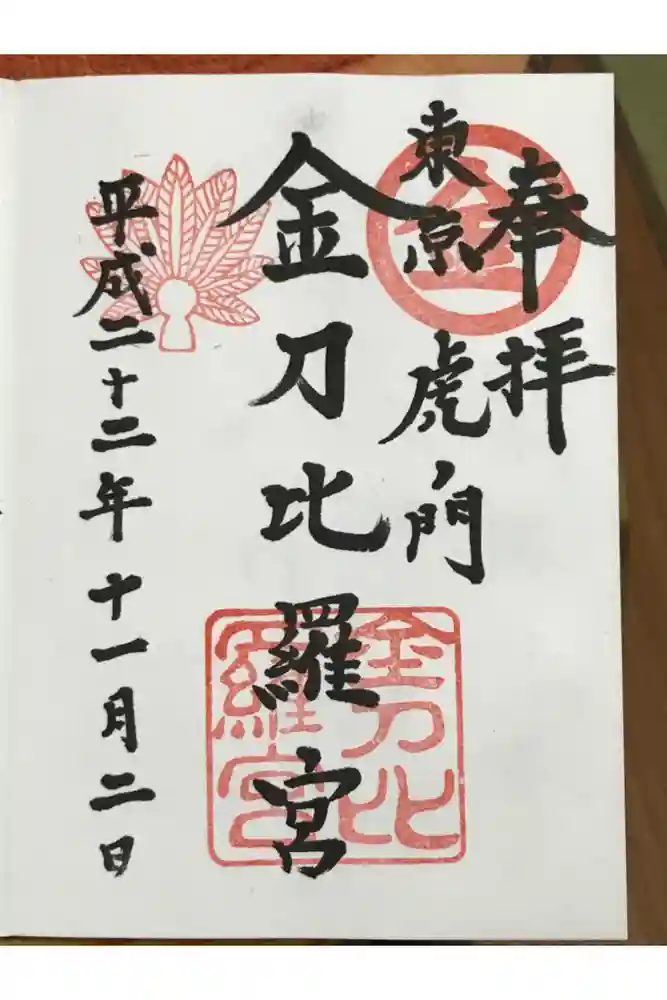 奉拝
東京虎ノ門
金刀比羅宮
平成二十二年十一月二日
金
金刀比
羅宮